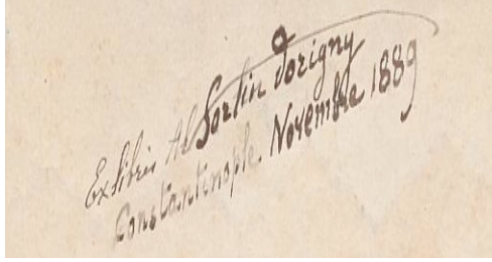 Exlibris Al Sorlin Dorigny
Constantinople. Novembre 1889